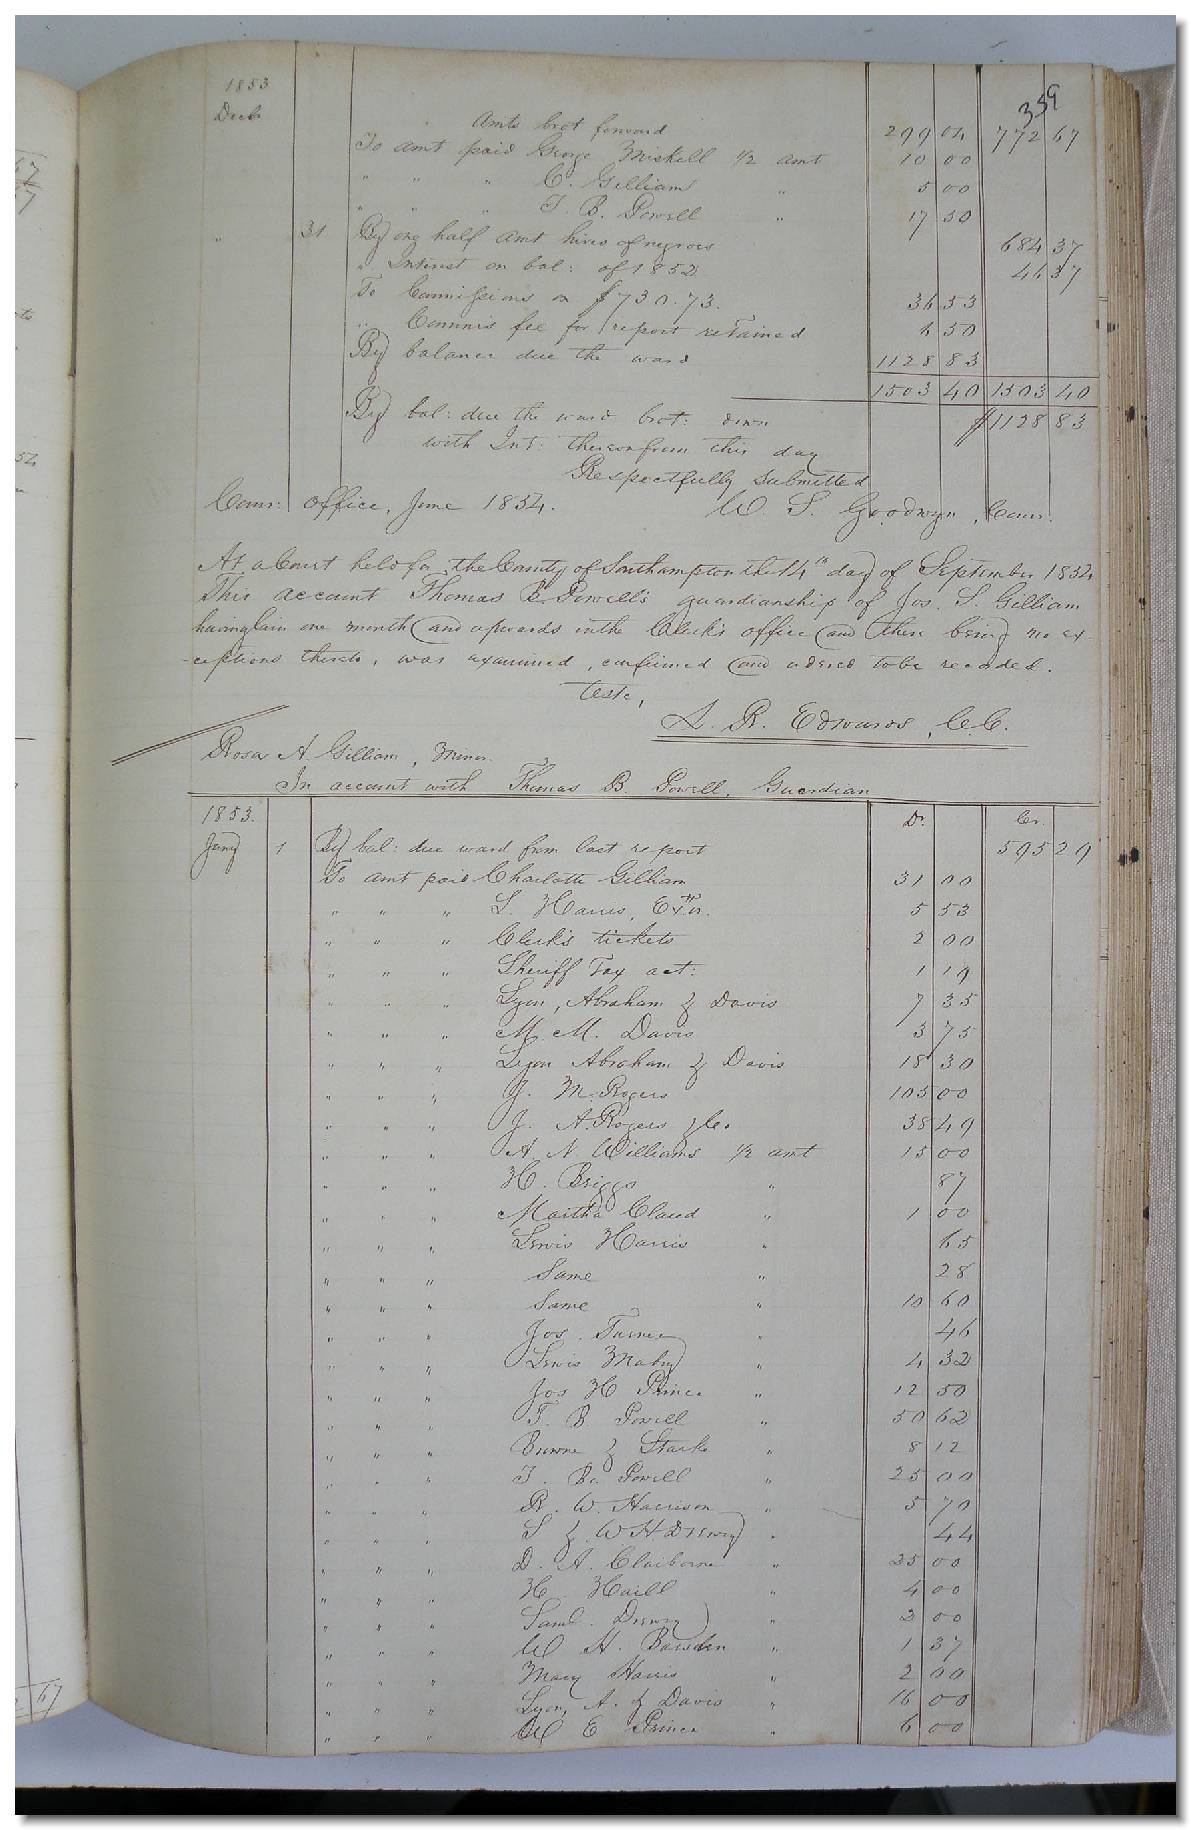 359
1853
Decb
Amts brot forward 299 04 772 67
To amt paid George Miskell 1/2 amt 10 00
" " " C. Gilliam " 5 00
" " " T. B. Powell " 17 50
" 31 By one half amt hires of negroes 684 37
" Interest on bal: of 1852 46 37
To Commissions on $730.73. 36 53
" Commrs fee for report retained 6 50
By balance due the ward 1128 83
1503 40 1503 40
By bal: due the ward brot: down $1128 83
with Int: thereon from this day
Respectfully submitted
Comr: office, June 1854. W. S. Goodwyn, Comr.
At a Court held for the County of Southampton the 14th day of September 1854
This account Thomas B. Powell's guardianship of Jos. S. Gilliam
having lain one month and upwards in the Clerk's office and there being no ex-
-ceptions thereto, was examined, confirmed and ordered to be recorded.
Teste,
L. R. Edwards, C.C.
Rosa A. Gilliam, Minor
In account with Thomas B. Powell, Guardian
1853. Dr. Cr.
Jany 1 By bal: due ward from last report 595 29
To amt paid Charlotte Gilliam 31 00
" " " L. Harris, Extr. 5 53
" " " Clerk's tickets 2 00
" " " Sheriff Tax act: 1 19
" " " Lyon, Abraham & Davis 7 35
" " " M. M. Davis 3 75
" " " Lyon Abraham & Davis 18 30
" " " J. M. Rogers 105 00
" " " J. A. Rogers & Co. 38 49
" " " A. N. Williams 1/2 amt 15 00
" " " H. Briggs " 87
" " " Martha Claud " 1 00
" " " Lewis Harris " 65
" " " Same " 28
" " " Same " 10 60
" " " Jos. Turner " 46
" " " Lewis Mabry " 4 32
" " " Jos H Prince " 12 50
" " " T. B Powell " 50 62
" " " Browne & Starke " 8 12
" " " T. B. Powell " 25 00
" " " R. W. Harrison " 5 70
" " " S & W H Drewry " 44
" " " D. A. Claiborne " 25 00
" " " H. Haill " 4 00
" " " Saml. Drewry " 2 00
" " " W H. Barsden " 1 37
" " " Mary Harris " 2 00
" " " Lyon, A. & Davis " 16 00
" " " W E Prince " 6 00